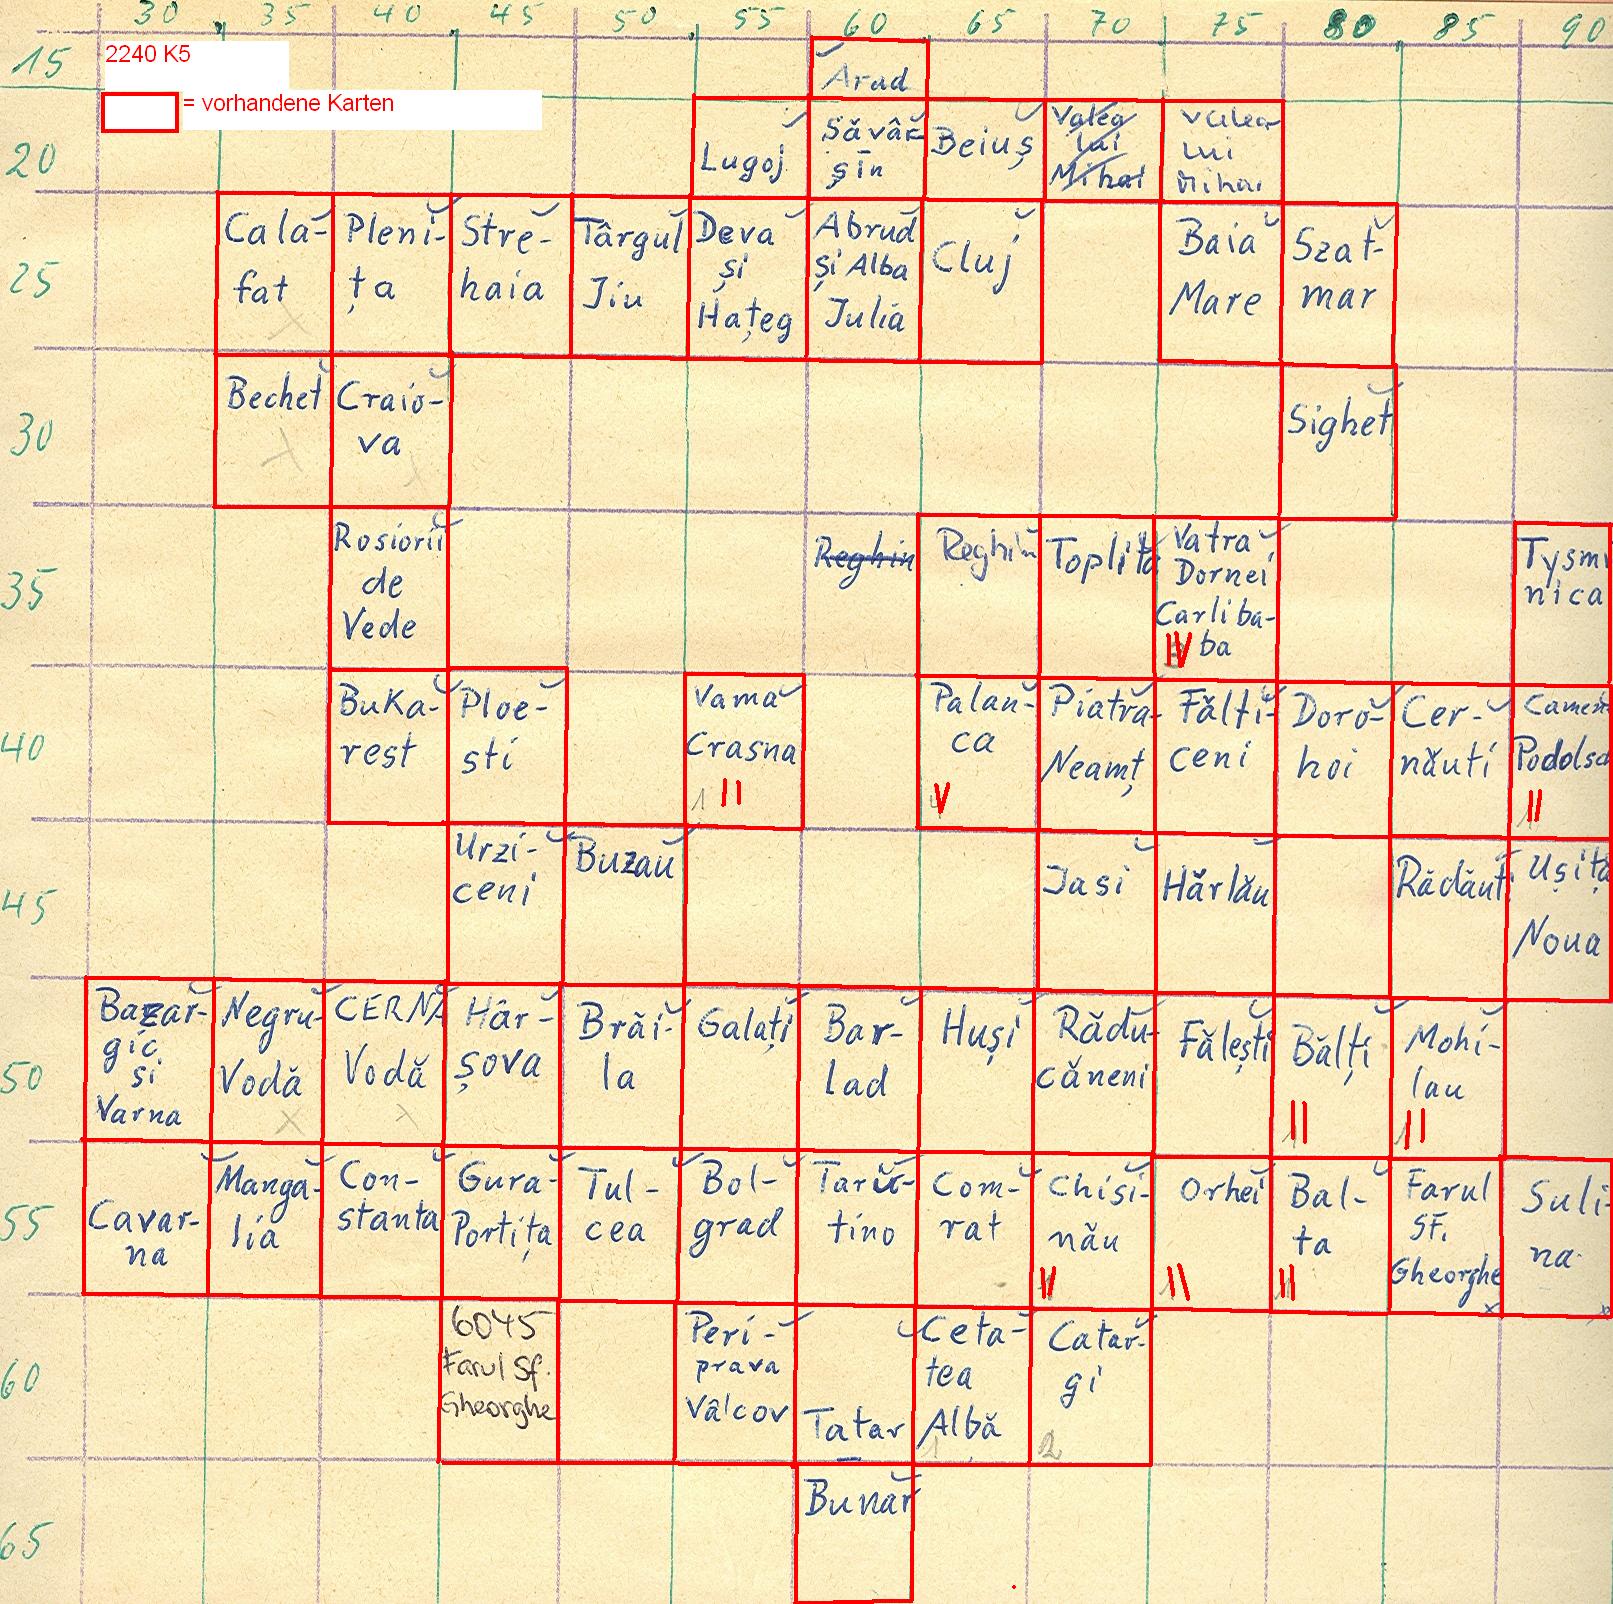 30 35 40 45 50 55 60 65 70 75 80 85 90
2240 K5
= vorhandene Karten
15
Arad
20
Lugoj
Săvâr
şin
Beiuş
Valea
lui
Mihai
Valea
lui
Mihai
25
Cala-
fat
Pleni-
ţa
Stre-
haia
Târgul
Jiu
Deva
şi
Haţeg
Abrud
şi Alba
Julia
Cluj
Baia
Mare
Szat-
mar
30
Bechet
Craio-
va
Sighet
35
Rosiorii
de
Vede
Reghin
Reghin
Toplita
Vatra
Dornei
Carliba-
ba
IV
Tysmi
nica
40
Buka-
rest
Ploe-
sti
Vama
Crasna
1 II
Palan-
ca
V
Piatra-
Neamţ
Fălti-
ceni
Doro-
hoi
Cer-
năuti
Camen
Podolsc
1 II
45
Urzi-
ceni
Buzau
Jasi
Hărlău
Rădăuţ
Uşiţa
Noua
50
Bazar-
gic
si
Varna
Negru-
Vodă
CERNA
Vodă
Hâr-
şova
Brăi-
la
Galaţi
Bar-
lad
Huşi
Rădu-
căneni
Făleşti
Bălţi
II
Mohi-
lau
II
55
Cavar-
na
Manga-
lia
Con-
stanta
Gura-
Portiţa
Tul-
cea
Bol-
grad
Taru-
tino
Com-
rat
Chisi-
nău
II
Orhei
II
Bal-
ta
II
Farul
SF.
Gheorghe
x
Suli-
na
x
60
6045
Farul Sf.
Gheorghe
Peri-
prava
Vâlcov
Tatar
Ceta-
tea
Albă
1
Catar-
gi
2
65
Bunar